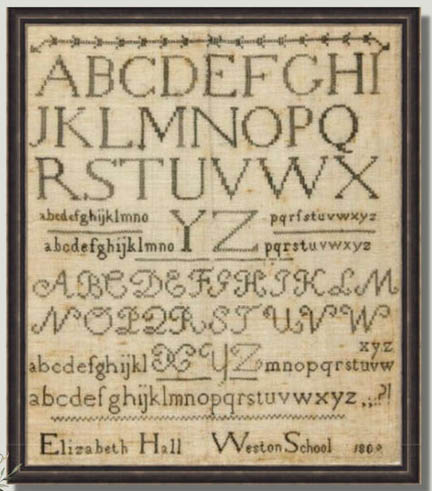 ABCDEFGHI
JKLMNOPQ
RSTUVWX
abcdefghijklmno YZ pqrſstuvwxyz
abcdefghijklmno pqrstuvwxyz
ABCDEFGHIKLM
NOPQRSTUVW
xyz
abcdefghijkl XYZ mnopqrstuvw
abcdefghijklmnopqrstuvwxyz.,;:?!
Elizabeth Hall Weston School